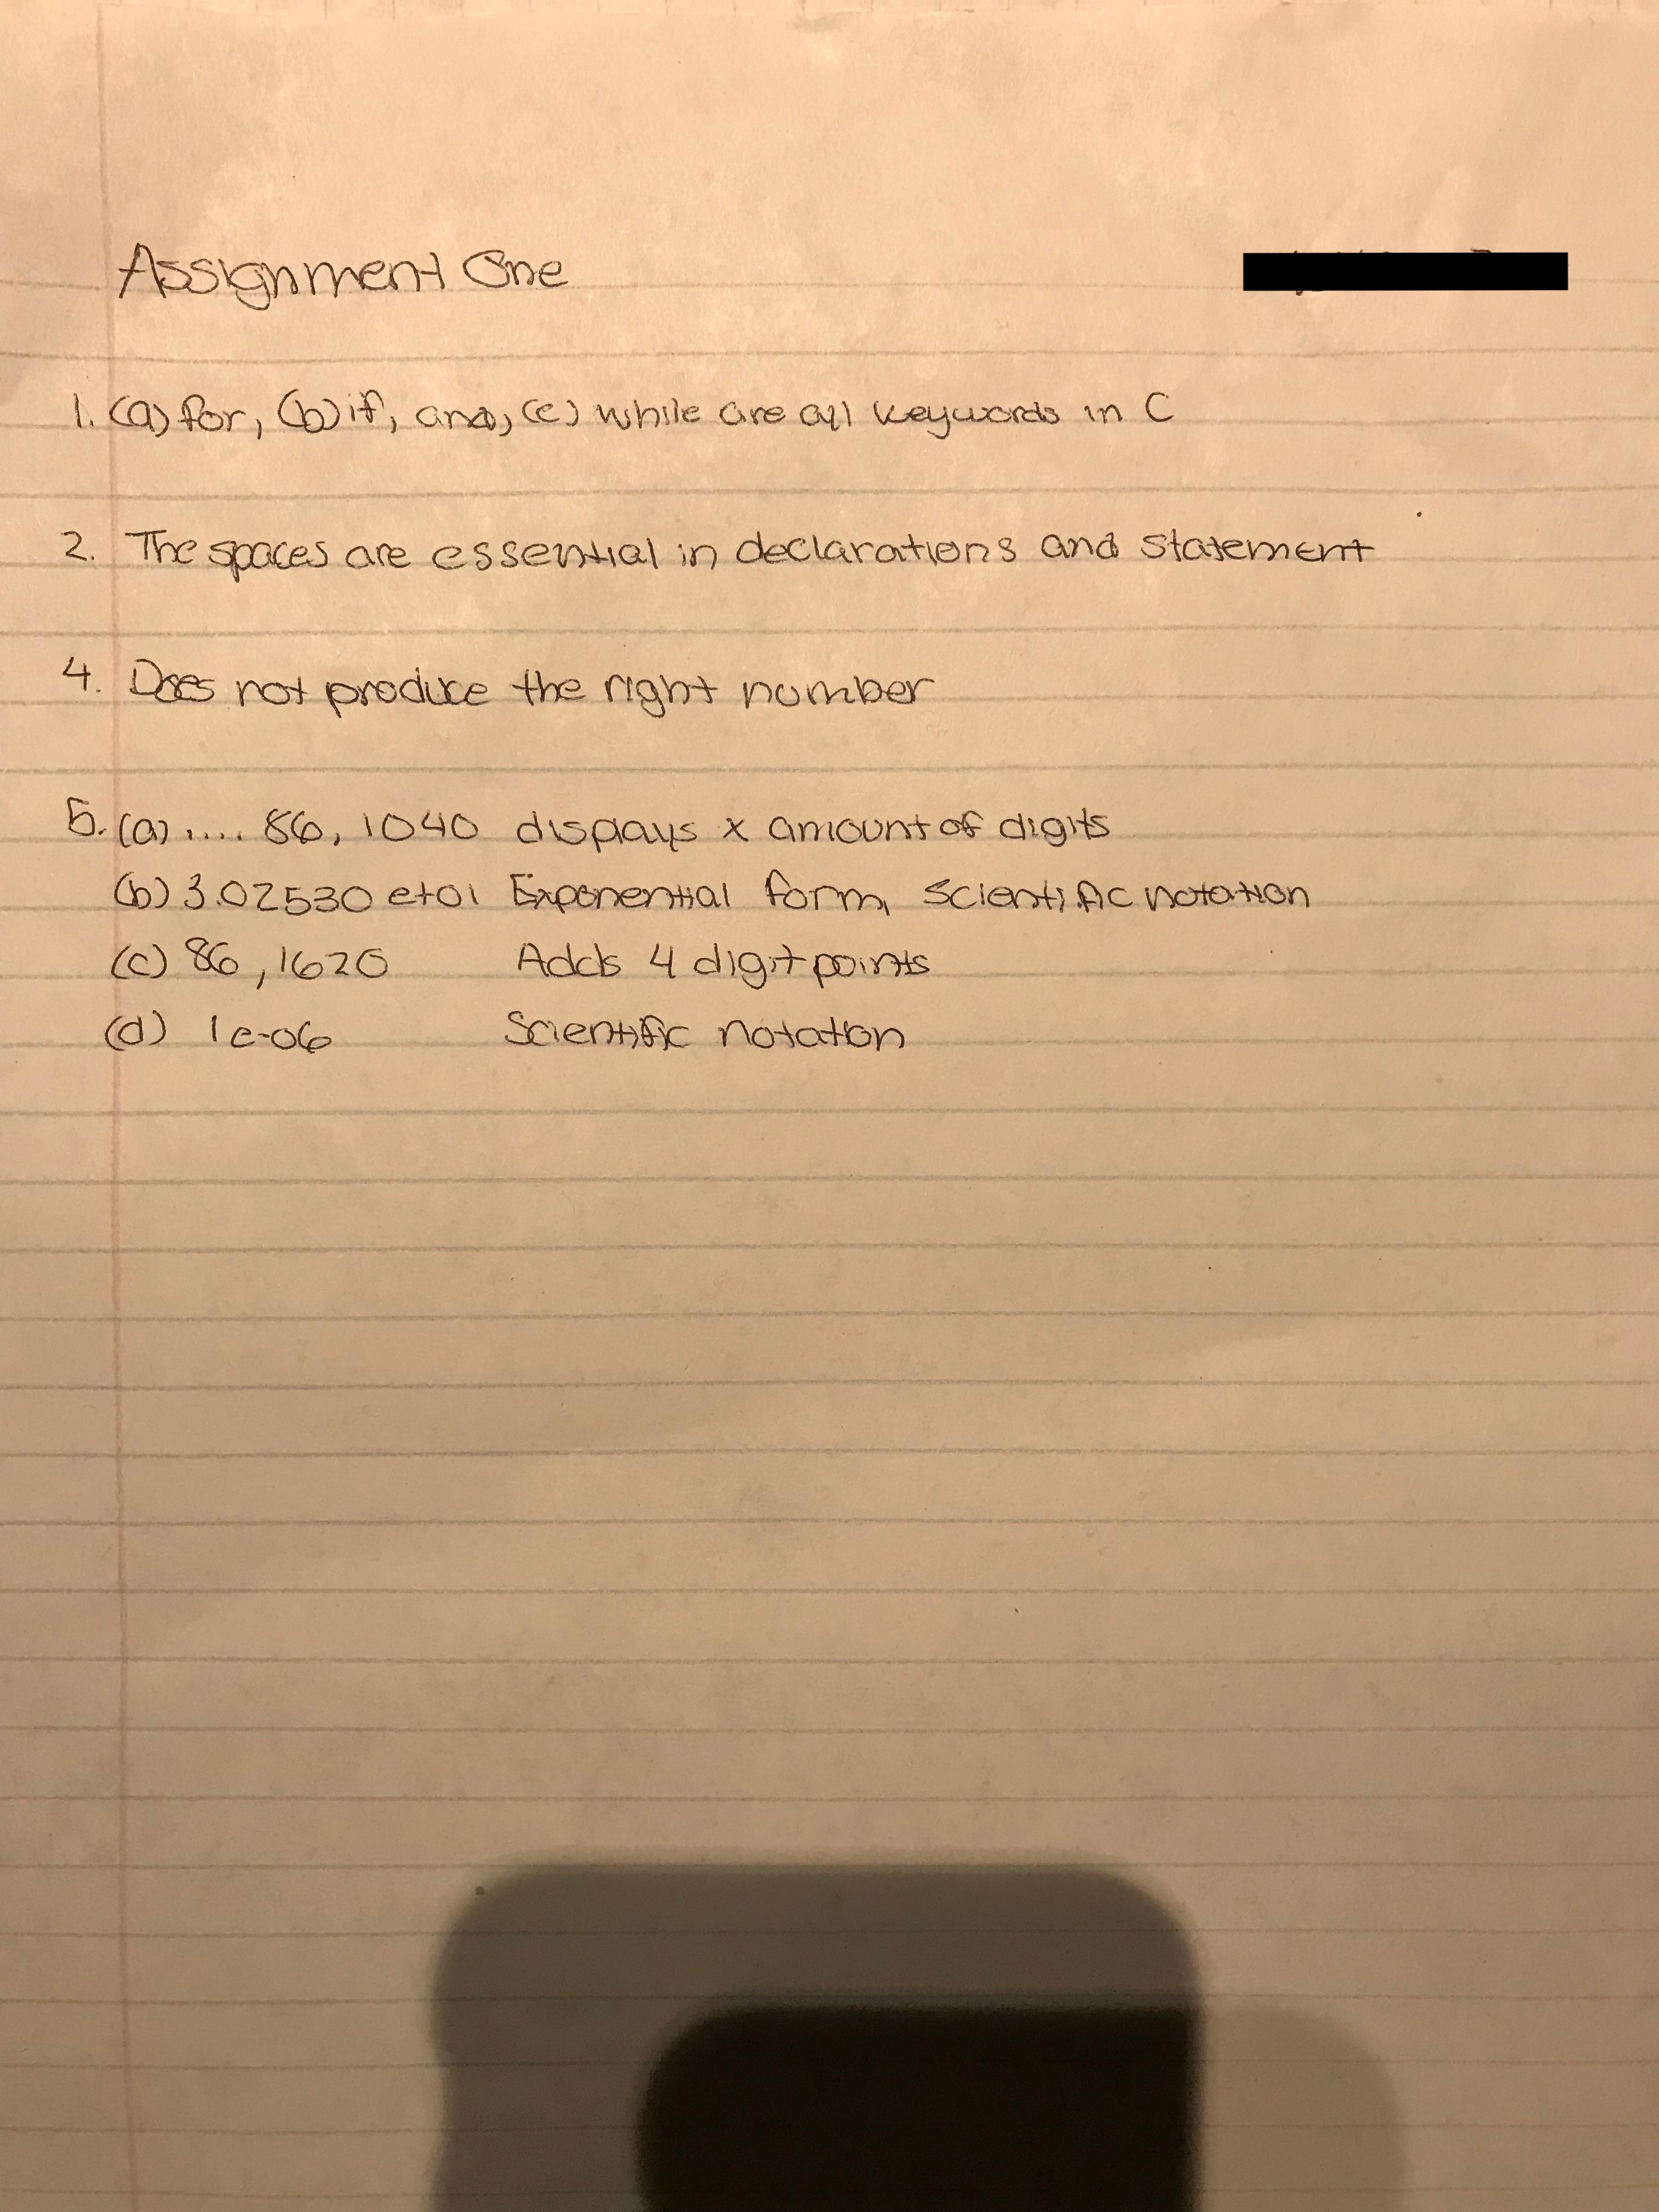 Assignment One
1. (a) for, (b) if, and, (e) while are all keywords in C
2. The spaces are essential in declarations and statement
4. Does not produce the right number
5. (a) .... 86, 1040 displays x amount of digits
(b) 3.02530 e+01 Exponential form, Scientific notation
(c) 86, 1620 Adds 4 digit points
(d) 1e-06 Scientific notation